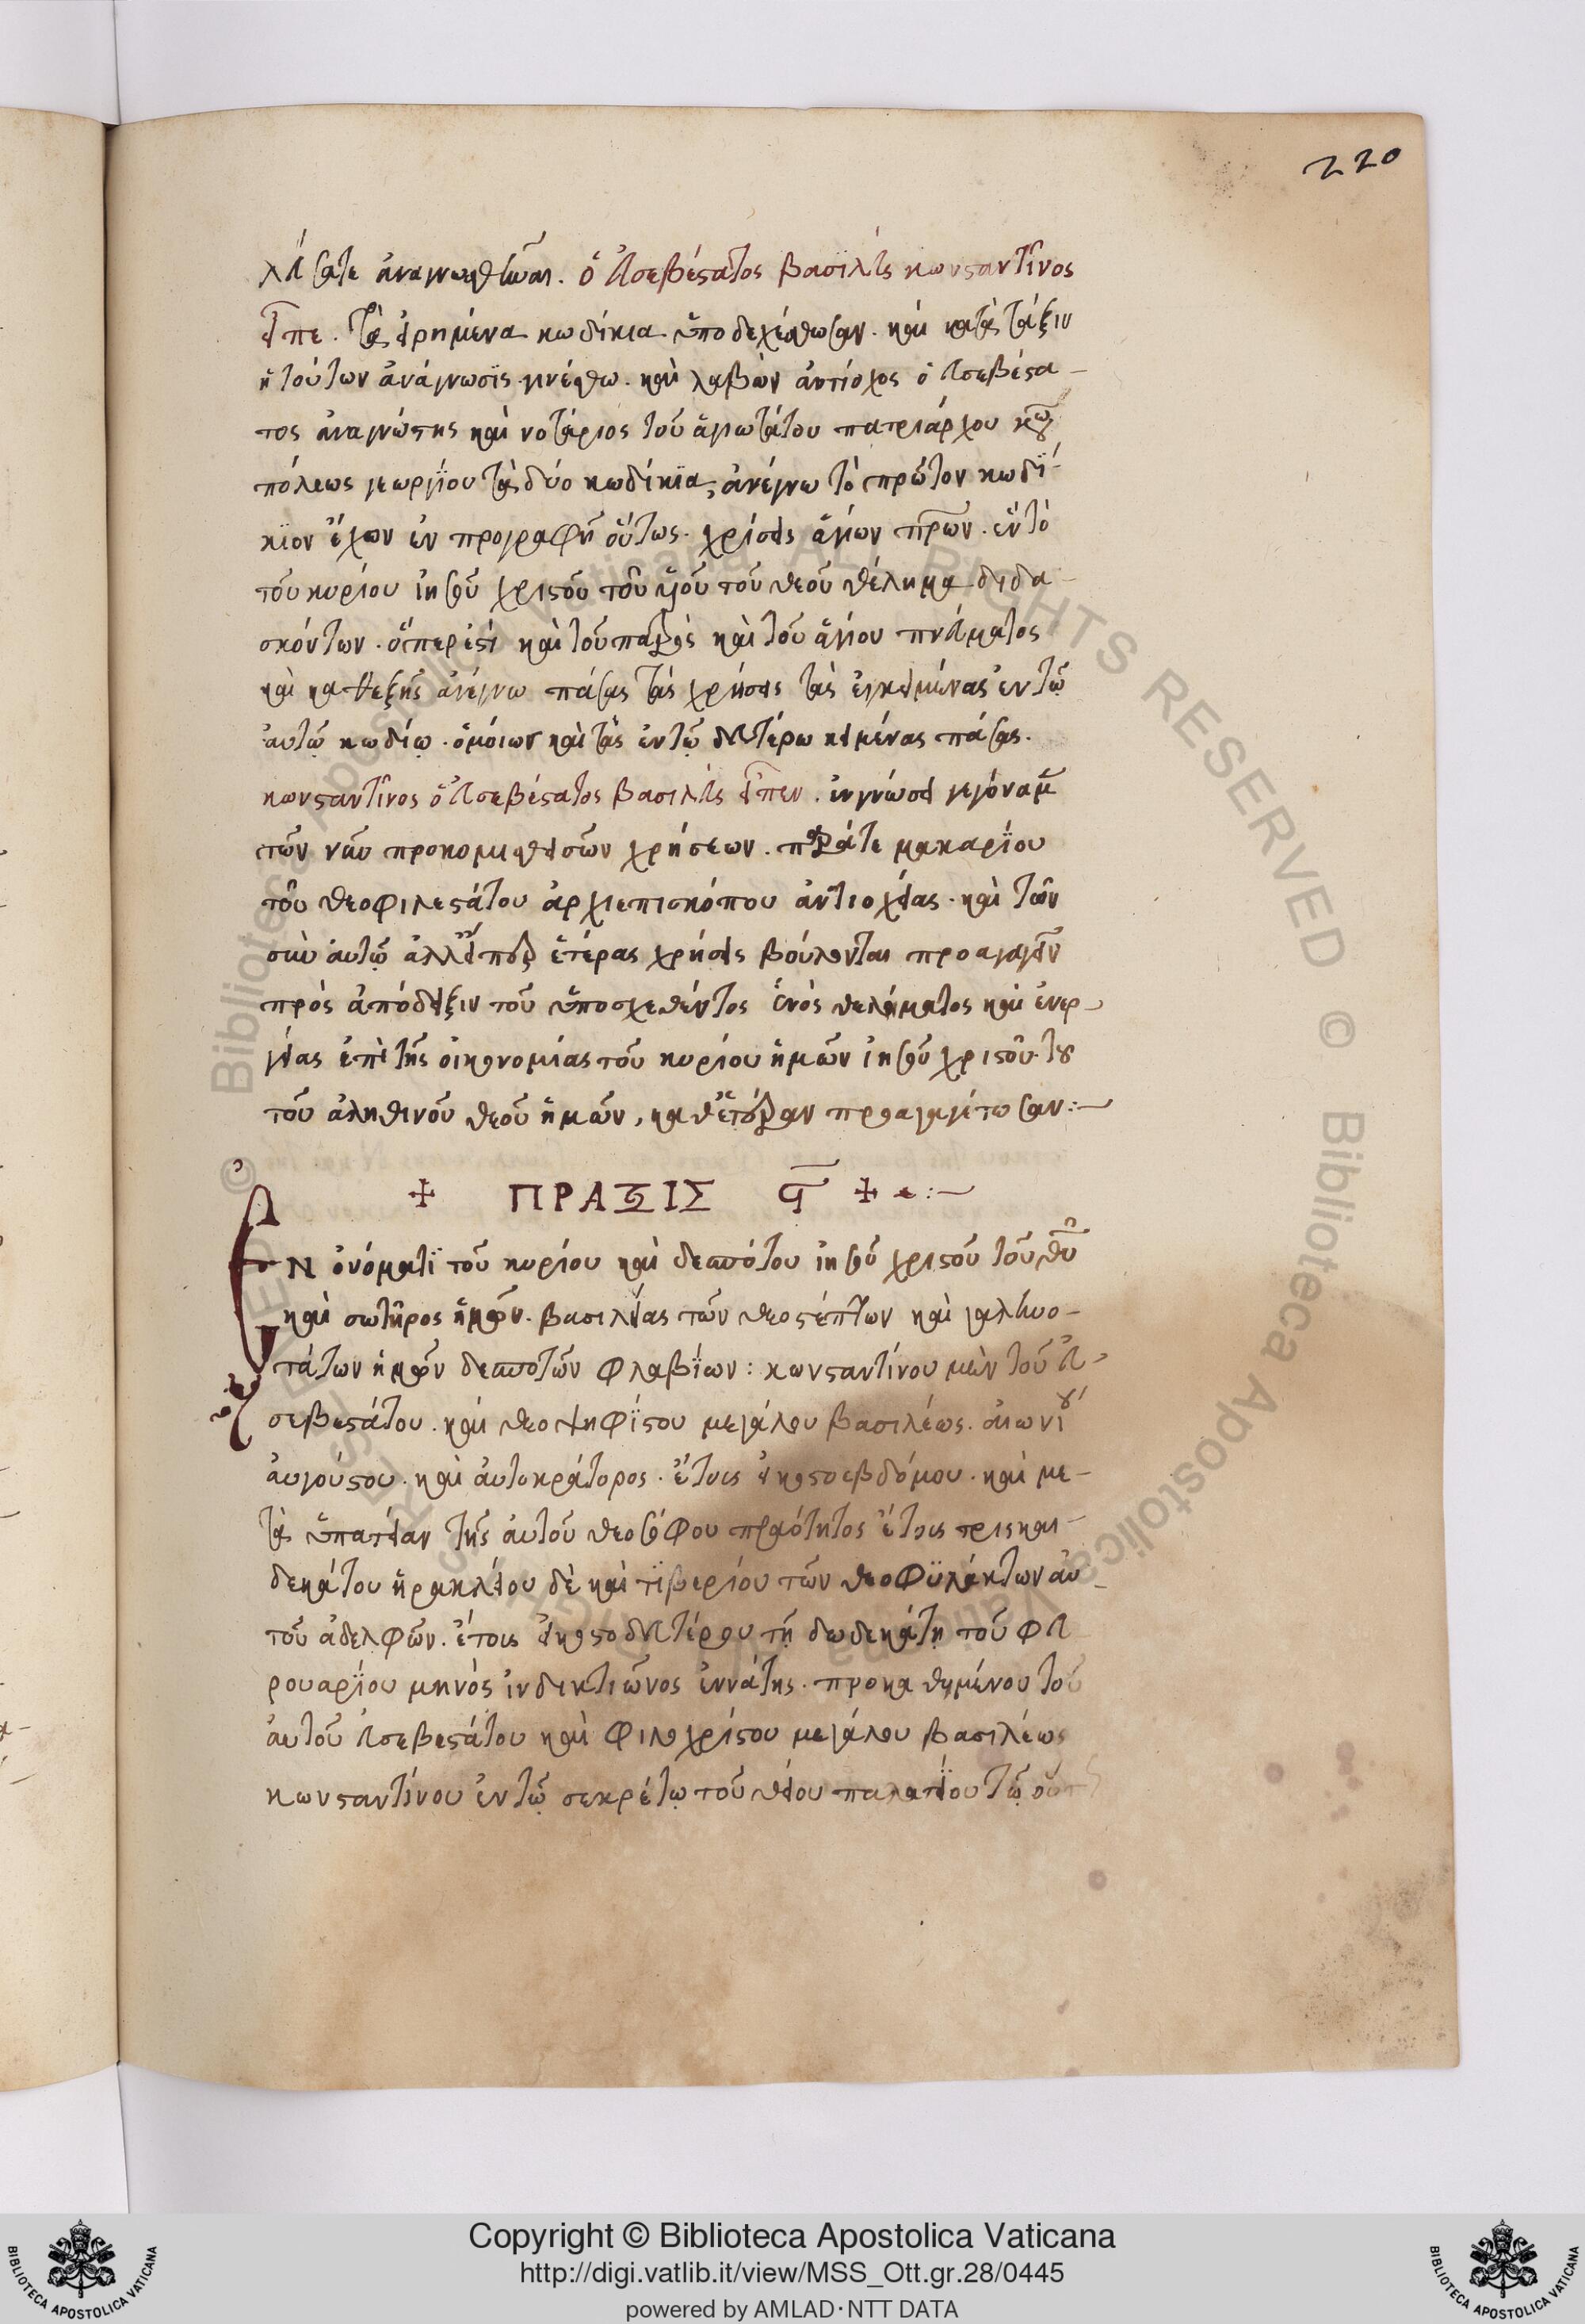 220
λεύσατε ἀναγνωσθῆναι. ὁ εὐσεβέστατος βασιλεὺς κωνσταντῖνος
εἶπε. τὰ εἰρημένα κωδίκια ὑποδεχέσθωσαν. καὶ κατὰ τάξιν
ἡ τούτων ἀνάγνωσϊς γινέσθω. καὶ λαβὼν ἀντίοχος ὁ εὐσεβέστα-
τος ἀναγνώστης καὶ νοτάριος τοῦ ἁγιωτάτου πατριάρχου κων
πόλεως γεωργΐου τὰ δύο κωδίκϊα, ἀνέγνω τὸ πρῶτον κωδΐ-
κϊον ἔχων ἐν προγραφῇ οὕτως. χρίσεις ἁγίων πρων. ἓν τὸ
τοῦ κυρίου ἰησοῦ χριστοῦ τοῦ υἱοῦ τοῦ θεοῦ θέλημα διδα-
σκόντων. ὅπερ ἐστὶ καὶ τοῦ πατρὸς καὶ τοῦ ἁγίου πνεύματος
καὶ καθεξῆς ἀνέγνω πάσας τὰς χρήσεις τὰς ἐγκειμένας ἐν τῷ
αὐτῷ κωδίῳ. ὁμοίως καὶ τὰς ἐν τῷ δευτέρω κειμένας πάσας.
κωνσταντῖνος ὁ εὐσεβέστατος βασιλεὺς εἶπεν. ἐν γνώσει γεγόναμεν
τῶν νῦν προκομισθεισῶν χρήσεων. παρά τε μακαρΐου
τοῦ θεοφιλεστάτου ἀρχιεπισκόπου ἀντιοχείας. καὶ τῶν
σὺν αὐτῷ ἀλλ' εἴπερ ἑτέρας χρήσεις βούλονται προαγαγεῖν
πρὸς ἀπόδειξιν τοῦ ὑποσχεθέντος ἑνὸς θελήματος καὶ ἐνερ-
γείας ἐπὶ τῆς οἰκονομίας τοῦ κυρίου ἡμῶν ἰησοῦ χριστοῦ. του
τοῦ ἀληθινοῦ θεοῦ ἡμῶν, καθ' ἑτέραν προαγαγέτωσαν:-
+ ΠΡΑΞΙΣ Ϛ +
ἐΝ ὀνόματϊ τοῦ κυρίου καὶ δεσπότου ἰησοῦ χριστοῦ τοῦ θυ
καὶ σωτῆρος ἡμῶν. βασιλείας τῶν θεοστέπτων καὶ γαληνο-
τάτων ἡμῶν δεσποτῶν φλαβΐων: κωνσταντίνου μὲν τοῦ εὐ-
σεβεστάτου. καὶ θεοψηφΐστου μεγάλου βασιλέως. αἰωνίου
αὐγούστου. καὶ αὐτοκράτορος. ἔτους εἰκοστοεβδόμου. καὶ με-
τὰ ὑπατείαν τῆς αὐτοῦ θεοσόφου πραότητος ἔτους τρισκαι-
δεκάτου ἡρακλείου δὲ καὶ τϊβερίου τῶν θεοφϋλάκτων αὐ-
τοῦ ἀδελφῶν. ἔτους εἰκοστοδευτέρου τῇ δωδεκάτῃ τοῦ φευ
ρουαρΐου μηνὸς ἰνδικτιῶνος ἐννάτης. προκαθημένου τοῦ
αὐτοῦ εὐσεβεστάτου καὶ φιλοχρίστου μεγάλου βασιλέως
κωνσταντίνου ἐν τῷ σεκρέτῳ τοῦ θείου παλατΐου τῷ
© Biblioteca Apostolica Vaticana ALL RIGHTS RESERVED
Copyright © Biblioteca Apostolica Vaticana
http://digi.vatlib.it/view/MSS_Ott.gr.28/0445
powered by AMLAD·NTT DATA
BIBLIOTECA APOSTOLICA VATICANA
BIBLIOTECA APOSTOLICA VATICANA